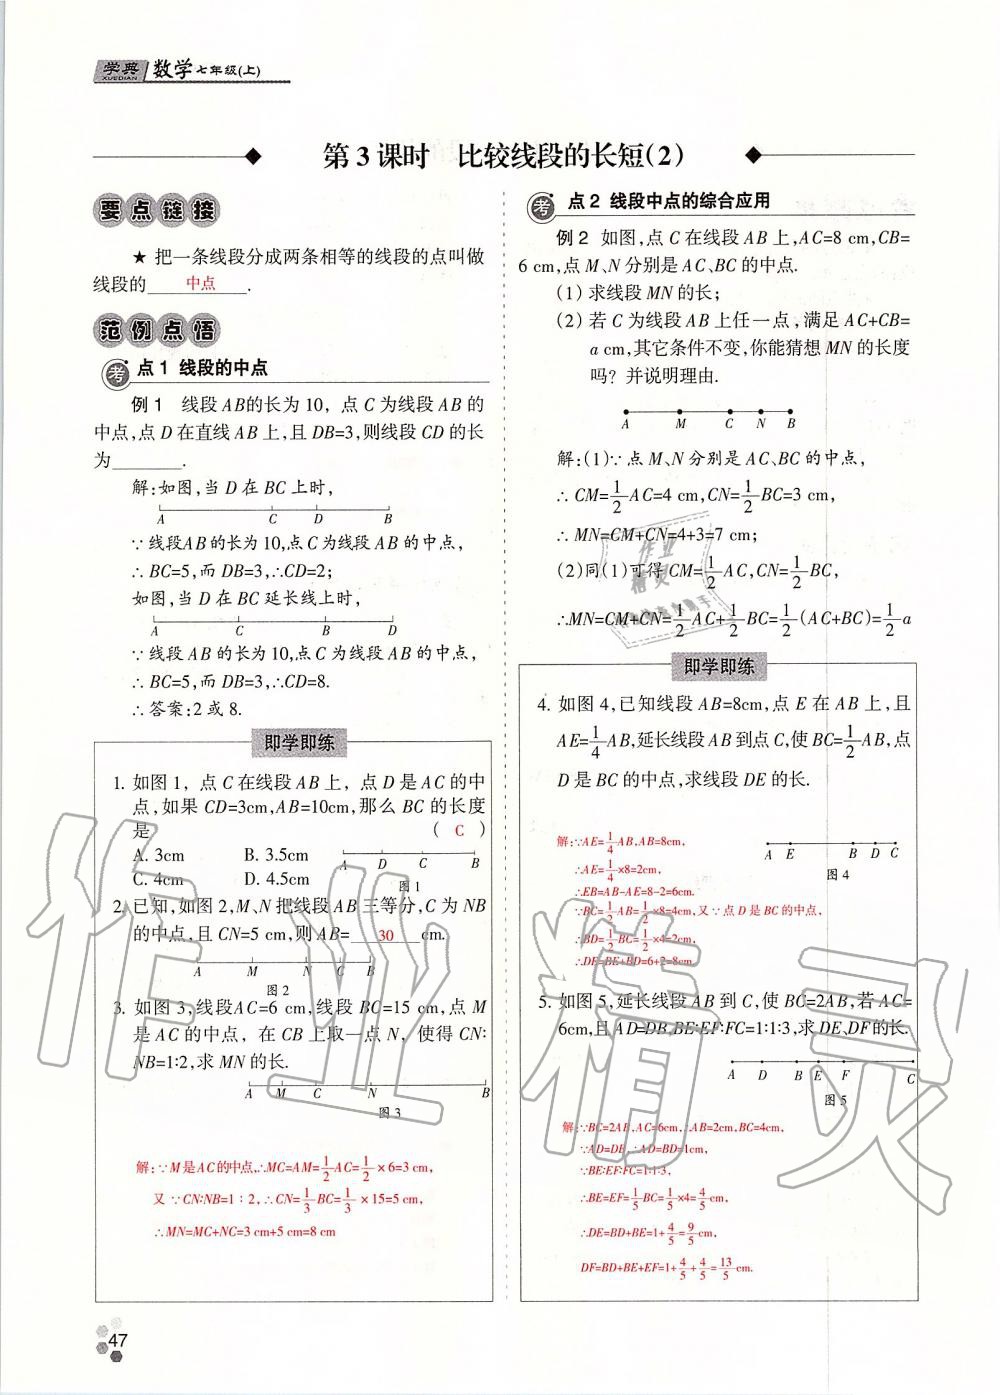 学典 数学 七年级(上)
XUEDIAN
第 3 课时 比较线段的长短(2)
要点链接
★ 把一条线段分成两条相等的线段的点叫做
线段的 中点 .
范例点悟
考点 1 线段的中点
例 1 线段 AB的长为 10，点 C 为线段 AB 的
中点,点 D 在直线 AB 上,且 DB=3,则线段 CD 的长
为________.
解:如图,当 D 在 BC 上时,
A C D B
∵线段AB 的长为 10,点 C 为线段 AB 的中点,
∴BC=5,而 DB=3,∴CD=2;
如图,当 D 在 BC 延长线上时,
A C B D
∵线段 AB 的长为 10,点 C 为线段 AB 的中点,
∴BC=5,而 DB=3,∴CD=8.
∴答案:2 或 8.
即学即练
1. 如图 1，点 C 在线段 AB 上，点 D 是 AC 的中
点,如果 CD=3cm,AB=10cm,那么 BC 的长度
是 ( C )
A. 3cm B. 3.5cm
C. 4cm D. 4.5cm
A D C B
图 1
2. 已知,如图 2,M、N 把线段 AB 三等分,C 为 NB
的中点,且 CN=5 cm,则 AB= 30 cm.
A M N C B
图 2
3. 如图 3,线段AC=6 cm,线段 BC=15 cm,点 M
是 AC 的中点，在 CB 上取一点 N，使得 CN∶
NB=1∶2,求 MN 的长.
A M C N B
图 3
解:∵M 是 AC 的中点,∴MC=AM=1/2AC=1/2×6=3 cm,
又∵CN∶NB=1∶2,∴CN=1/3BC=1/3×15=5 cm,
∴MN=MC+NC=3 cm+5 cm=8 cm
47
考点 2 线段中点的综合应用
例 2 如图,点 C 在线段 AB 上,AC=8 cm,CB=
6 cm,点 M、N 分别是 AC、BC 的中点.
(1) 求线段 MN 的长;
(2) 若 C 为线段 AB 上任一点,满足 AC+CB=
a cm,其它条件不变,你能猜想 MN 的长度
吗? 并说明理由.
A M C N B
解:(1)∵点 M、N 分别是 AC、BC 的中点,
∴CM=1/2AC=4 cm,CN=1/2BC=3 cm,
∴MN=CM+CN=4+3=7 cm;
(2)同(1)可得 CM=1/2AC,CN=1/2BC,
∴MN=CM+CN=1/2AC+1/2BC=1/2(AC+BC)=1/2a
即学即练
4. 如图 4,已知线段 AB=8cm,点 E 在 AB 上,且
AE=1/4AB,延长线段 AB 到点 C,使 BC=1/2AB,点
D 是 BC 的中点,求线段 DE 的长.
解:∵AE=1/4AB,AB=8cm,
∴AE=1/4×8=2cm,
∴EB=AB-AE=8-2=6cm.
∵BC=1/2AB=1/2×8=4cm,又∵点 D 是 BC 的中点,
∴BD=1/2BC=1/2×4=2cm,
∴DE=BE+BD=6+2=8cm.
A E B D C
图 4
5. 如图 5,延长线段 AB 到 C,使 BC=2AB,若 AC=
6cm,且 AD=DB,BE∶EF∶FC=1∶1∶3,求 DE、DF 的长.
A D B E F C
图 5
解:∵BC=2AB,AC=6cm,∴AB=2cm,BC=4cm,
∵AD=DB,∴AD=BD=1cm,
∵BE∶EF∶FC=1∶1∶3,
∴BE=EF=1/5BC=1/5×4=4/5cm,
∴DE=BD+BE=1+4/5=9/5cm,
DF=BD+BE+EF=1+4/5+4/5=13/5cm.
作业精灵